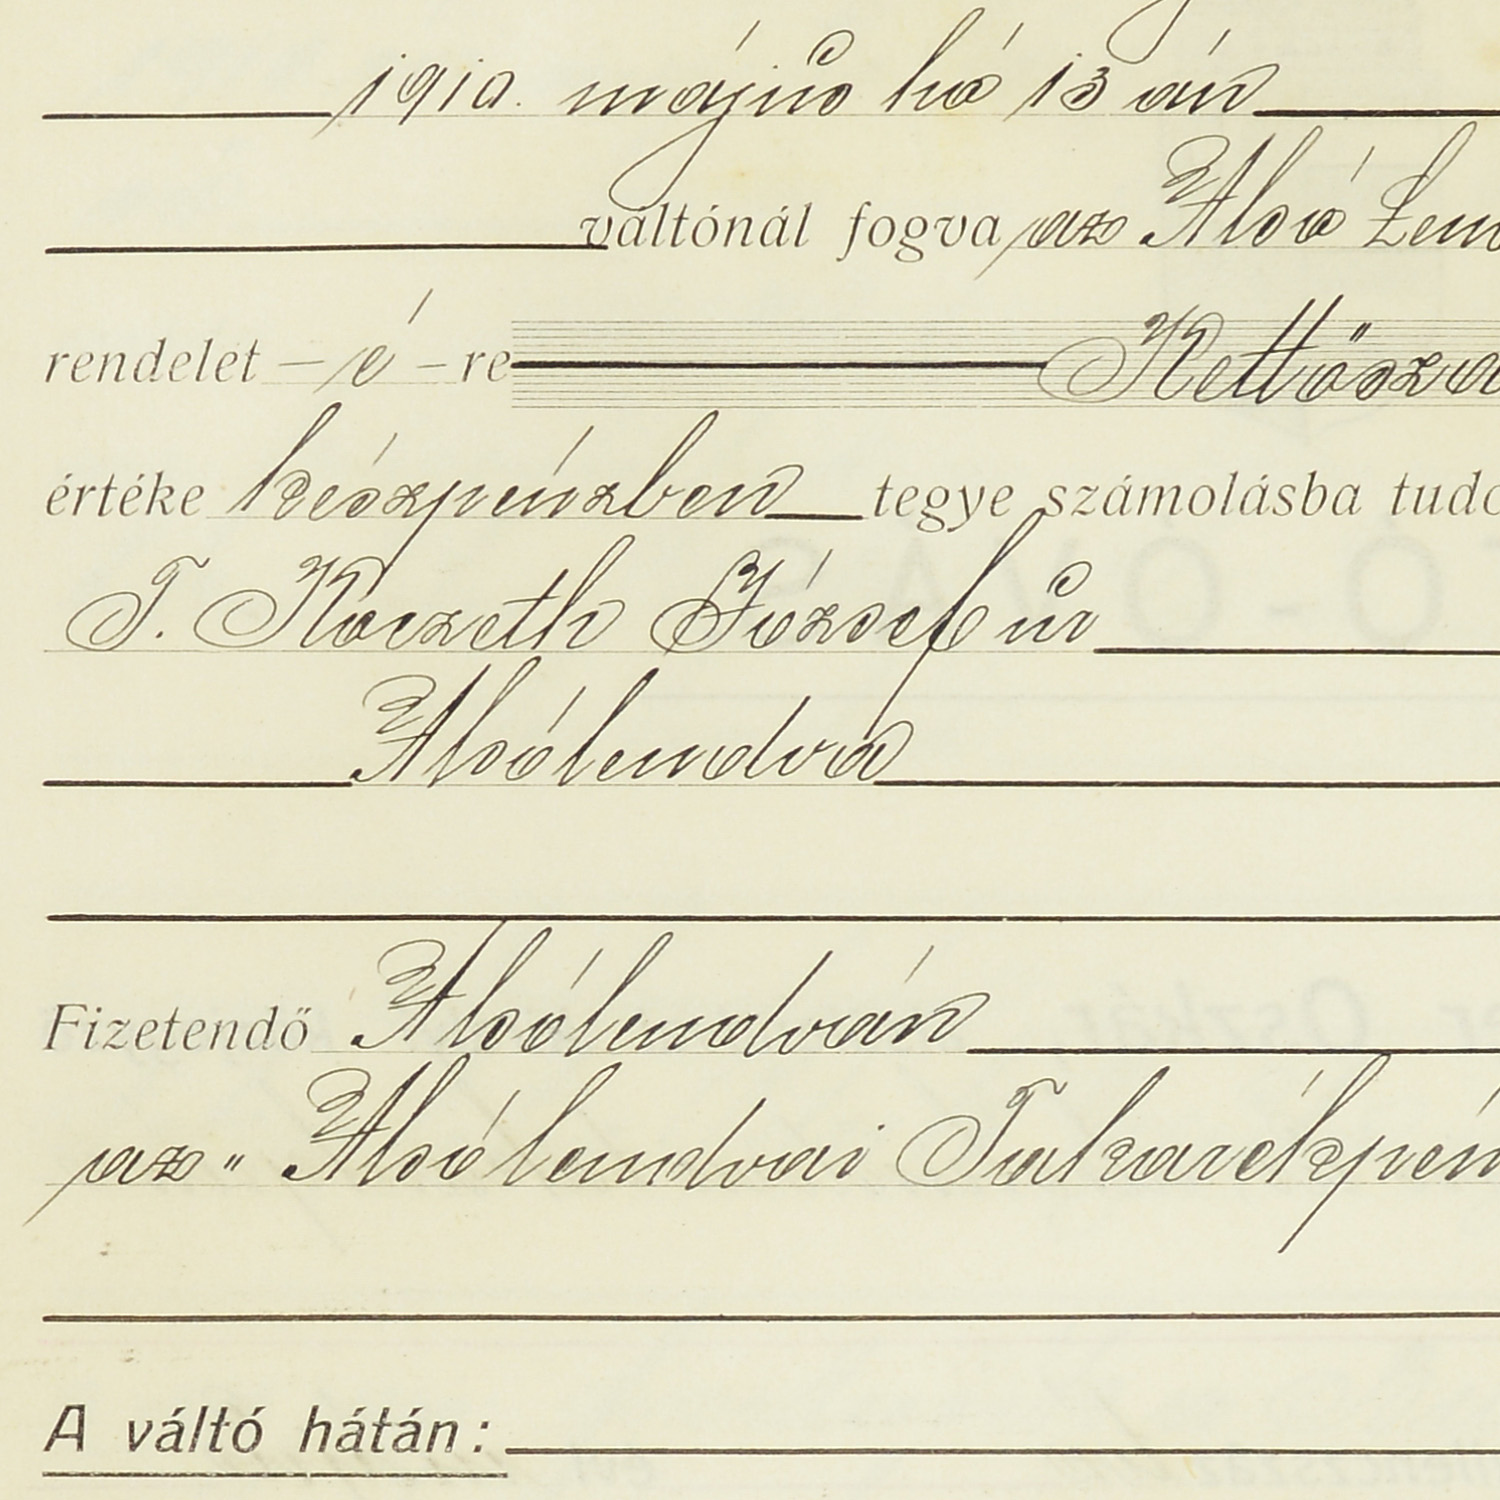 1910. május hó 13 án
váltónál fogva az Alsó Len
rendelet – é – re Kettősza
értéke készpénzben tegye számolásba tudo
T. Koczeth József úr
Alsólendva
Fizetendő Alsólendván
az „ Alsólendvai Takarékpén
A váltó hátán: